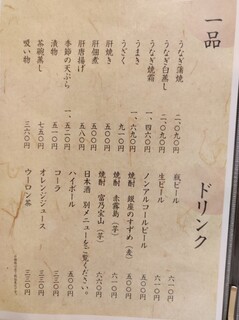 一品
うなぎ蒲焼 二、〇九〇円
うなぎ白蒸し 二、〇九〇円
うなぎ焼霜 一、四六〇円
うまき 一、六九〇円
うざく 九一〇円
肝焼き 五〇〇円
肝佃煮 五〇〇円
肝唐揚げ 五〇〇円
季節の天ぷら 一、五二〇円
漬物 四五〇円
茶碗蒸し 七五〇円
吸い物 三六〇円
ドリンク
瓶ビール 六一〇円
生ビール 六一〇円
ノンアルコールビール 五〇〇円
焼酎 銀座のすずめ(麦) 五〇〇円
焼酎 赤霧島(芋) 六一〇円
焼酎 富乃宝山(芋) 六六〇円
日本酒 別メニューをご覧ください。
ハイボール 五〇〇円
コーラ 三三〇円
オレンジジュース 三三〇円
ウーロン茶 三三〇円